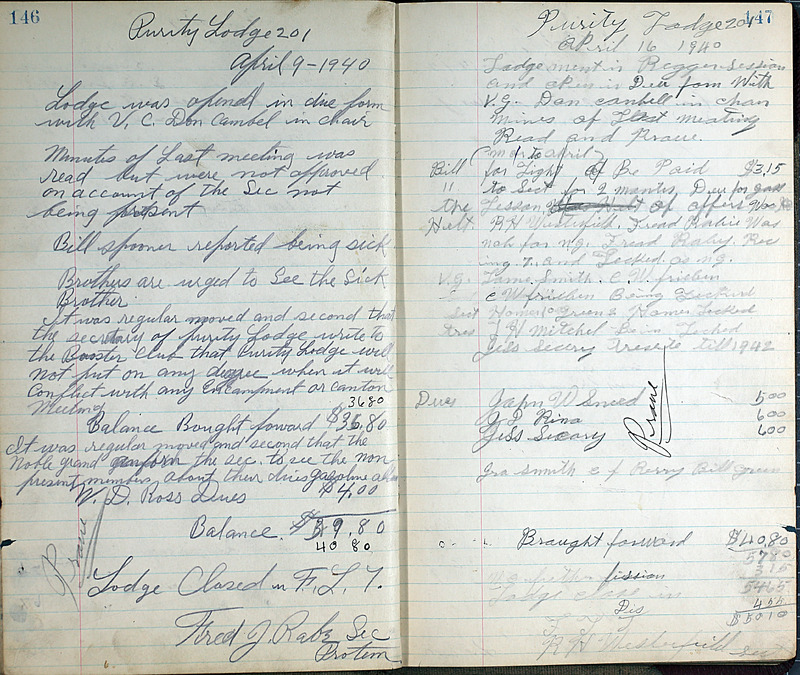 146
Purity Lodge 201
April 9-1940
Lodge was opend in due form
with V. C. Don Cambel in chair
Minutes of Last meeting was
read but were not approved
on account of the Sec not
being present
Bill spooner reported being sick
Brothers are urged to See the Sick
Brother.
It was regular moved and second that
the secretary of purity Lodge write to
the Booster Club that Purity Lodge will
not put on any degree when it will
Conflict with any Encampment or canton
Meeting
3680
Balance Bought forward $36.80
It was regular moved and second that the
Noble grand the sec. to see the non
present members about their dues gasoline
W. D. Ross Dues $4.00
Balance. $39.80
40 80
Prave
Lodge Closed in F. L. T.
Fred J. Rabe Sec
Protem
147
Purity Lodge 201
April 16 1940
Lodge ment in Regger Session
and open in Deer fom With
V.G. Don canbell in chair
mines of Last meating
Read and Prave.
Mar to april
Bill for Light of Be Paid $3.15
" to Sect for 2 mantes, Deer for
the Lesson of offers Was
Helt. R H Westerfield, Fread Rabie Was
noh for n.g. Fread Raby, Rec
ing 7. and Locked as n.g.
V.G. Jame Smith. C W frieben
C W frieben Being
Sect Homer Green & Homer Locked
Tres J H Mitchel Be in Locked
Jess Secary till 1942
Dues John W Sneed 500
Rina 600
Jess Secary 600
Prave
Ira Smith c f Perry Bill Green
Braught forward $40.80
5780
315
fission 5465
Lodge close in
Dis 455
$5010
R H Westerfield
Sect